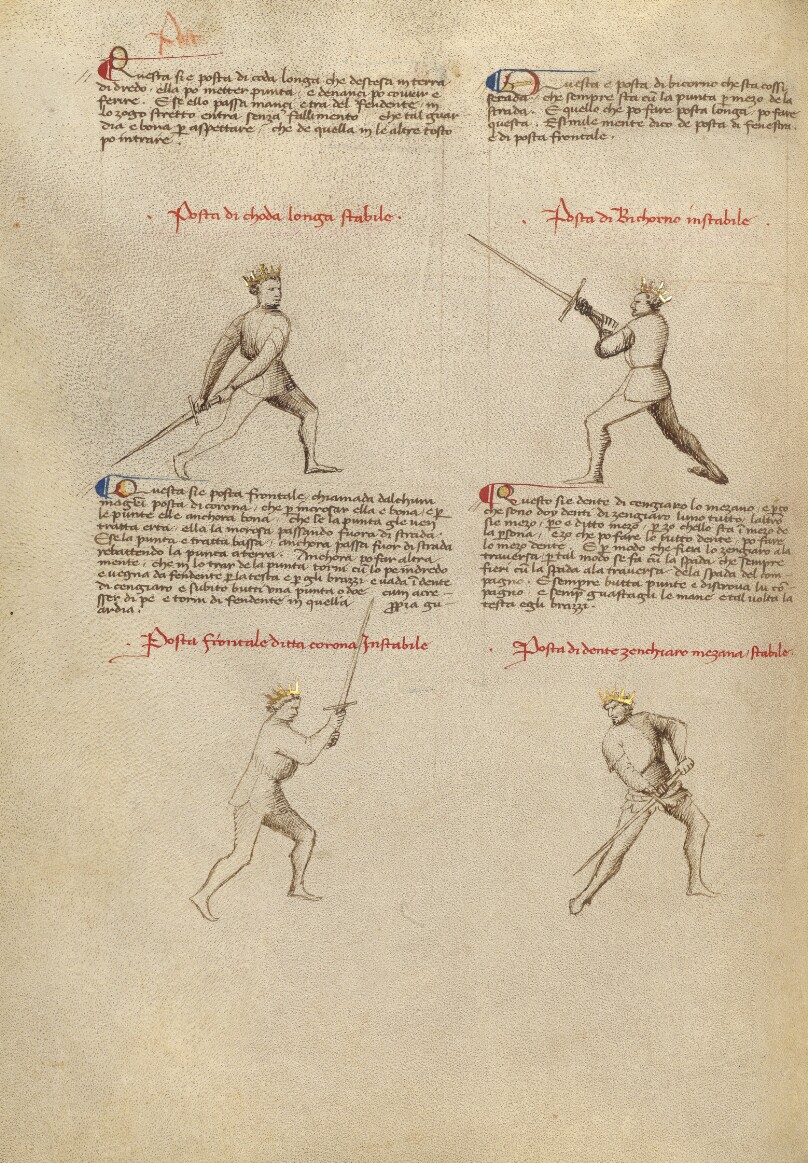 Questa sie posta di coda longa che destesa in terra
di dredo. ella po metter punta, e denanci po covrir e
ferire. E se ello passa inanci e tra del fendente, in
lo zogo stretto entra senza fallimento che tal guar
dia e bona p aspettare, che de quella in le altre tosto
po intrare.
Posta di choda longa stabile.
Questa e posta di bicorno che sta cossi
serada, che sempre sta cū la punta p mezo de la
strada. E quello che po fare posta longa, po fare
questa. E simile mente dico de posta di fenestra.
e di posta frontale.
Posta di Bichorno instabile
Questa sie posta frontale, chiamada dalchun
magistri posta di corona, che p incrosar ella e bona, e p
le punte ell e anchora bona, che se la punta gle ven
tratta erta, ella la incrosa passando fuora di strada.
E se la punta e tratta bassa, anchora passa fuor di strada
rebattendo la punta a terra. Anchora po far altra
mente, che in lo trar de la punta torni cū lo pe indredo
e vegna da fendente p la testa e p gli brazzi e vada ī dente
di cengiaro e subito butti una punta o doe cum acre
sser di pe e torni di fendente in quella ppia gu
ardia.
Posta frontale ditta corona Instabile
Questo sie dente di cengiaro lo mezano, e pço
che sono doy denti di zengiaro luno tutto, laltro
sie mezo, po e ditto mezo, p zo chello sta ī mezo de
la psona, e zo che po fare lo tutto dente, po fare
lo mezo dente. E p modo che fiera lo zengiaro ala
traversa, p tal modo se fa cū la spada, che sempre
fieri cū la spada ala traversa dela spada del com
pagno. E sempre butta punte e discrova lu cō
pagno e semp guastagli le mane e tal volta la
testa e gli brazzi.
Posta di dente zenchiaro mezana, stabile.